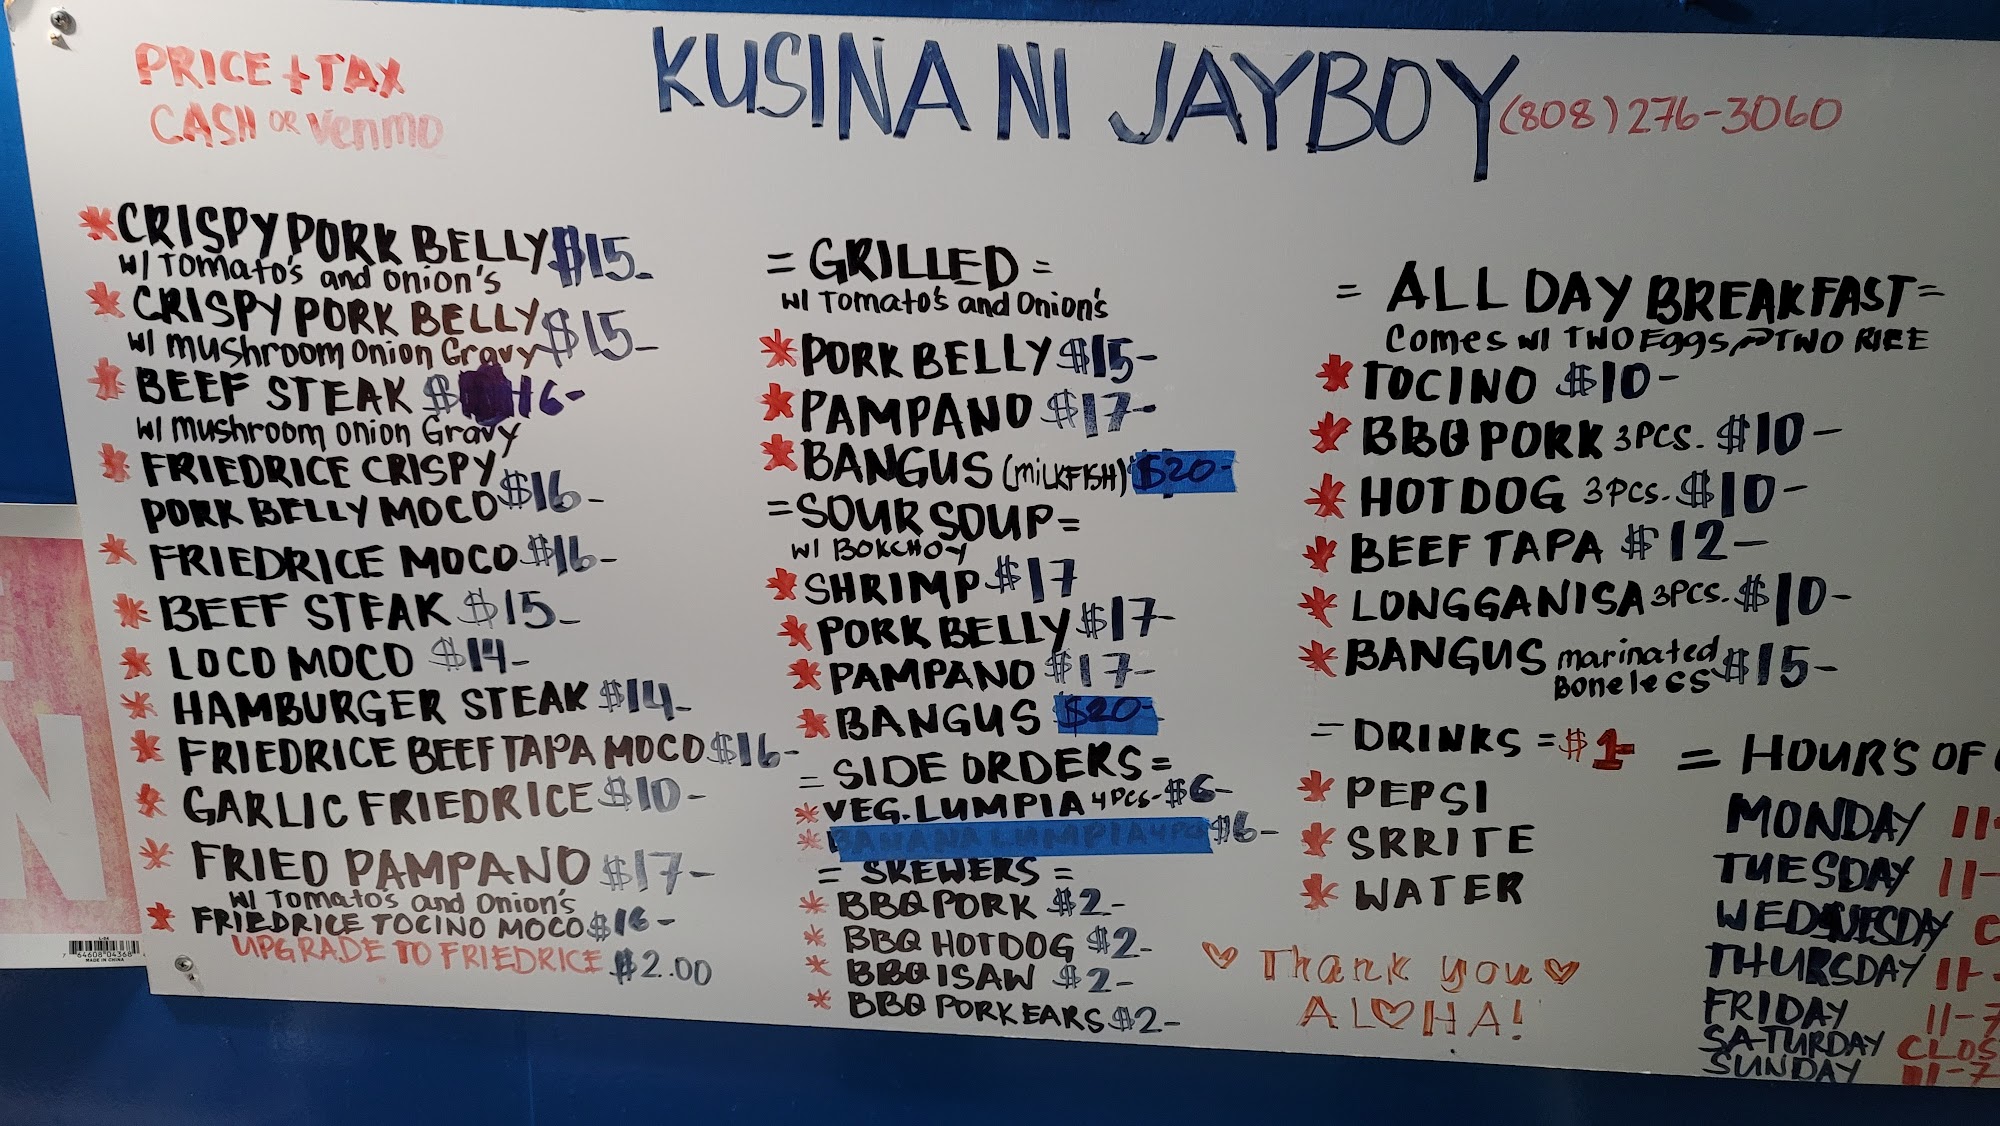 PRICE + TAX
CASH OR venmo
KUSINA NI JAYBOY (808) 276-3060
* CRISPY PORK BELLY $15-
W/ TOmato's and onion's
* CRISPY PORK BELLY $15-
W/ mushroom onion Gravy
* BEEF STEAK $16-
W/ mushroom onion Gravy
* FRIEDRICE CRISPY
PORK BELLY MOCO $16-
* FRIEDRICE MOCO $16-
* BEEF STEAK $15-
* LOCO MOCO $14-
* HAMBURGER STEAK $14-
* FRIEDRICE BEEF TAPA MOCO $16-
* GARLIC FRIEDRICE $10-
* FRIED PAMPANO $17-
W/ TOmato's and Onion's
* FRIEDRICE TOCINO MOCO $16-
UPGRADE TO FRIEDRICE $2.00
= GRILLED =
W/ TOmato's and Onion's
* PORK BELLY $15-
* PAMPANO $17-
* BANGUS (MILKFISH) $20-
= SOUR SOUP =
W/ BOKCHOY
* SHRIMP $17
* PORK BELLY $17-
* PAMPANO $17-
* BANGUS $20-
= SIDE ORDERS =
* VEG. LUMPIA 4PCS- $6-
* BANANA LUMPIA 4PCS $6-
= SKEWERS =
* BBQ PORK $2-
* BBQ HOTDOG $2-
* BBQ ISAW $2-
* BBQ PORK EARS $2-
= ALL DAY BREAKFAST =
Comes W/ TWO Eggs, TWO RICE
* TOCINO $10-
* BBQ PORK 3PCS. $10-
* HOTDOG 3PCS. $10-
* BEEF TAPA $12-
* LONGGANISA 3PCS. $10-
* BANGUS marinated Boneless $15-
= DRINKS = $1-
* PEPSI
* SRRITE
* WATER
♡ Thank you ♡
ALOHA!
= HOUR'S OF
MONDAY 11-
TUESDAY 11-
WEDNESDAY C
THURSDAY 11-
FRIDAY 11-7
SATURDAY CLOS
SUNDAY 11-7
7 64608 04368
MADE IN CHINA